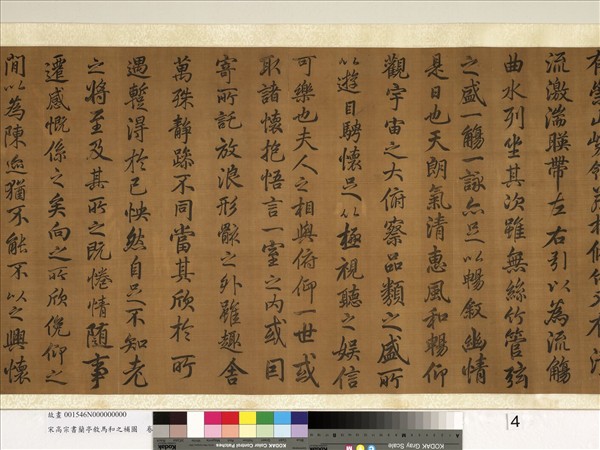 有崇山峻領茂林修竹又有清
流激湍暎帶左右引以為流觴
曲水列坐其次雖無絲竹管弦
之盛一觴一詠亦足以暢敘幽情
是日也天朗氣清惠風和暢仰
觀宇宙之大俯察品類之盛所
以遊目騁懷足以極視聽之娛信
可樂也夫人之相與俯仰一世或
取諸懷抱悟言一室之內或因
寄所託放浪形骸之外雖趣舍
萬殊靜躁不同當其欣於所
遇蹔得於己怏然自足不知老
之將至及其所之既惓情隨事
遷感慨係之矣向之所欣俛仰之
閒以為陳迹猶不能不以之興懷
故畫 001546N000000000
宋高宗書蘭亭敘馬和之補圖 卷
KODAK Color Control Patches
KODAK Gray Scale
C M Y
4